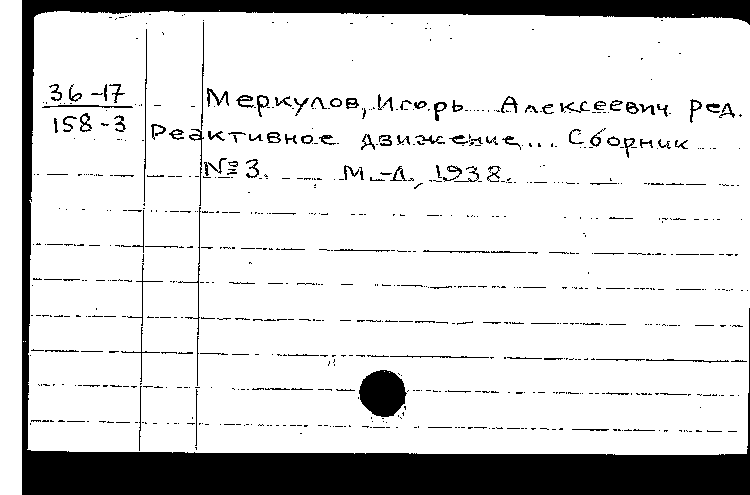 36-17
158-3
Меркулов, Игорь Алексеевич ред.
Реактивное движение... Сборник
№ 3. М.-Л., 1938.